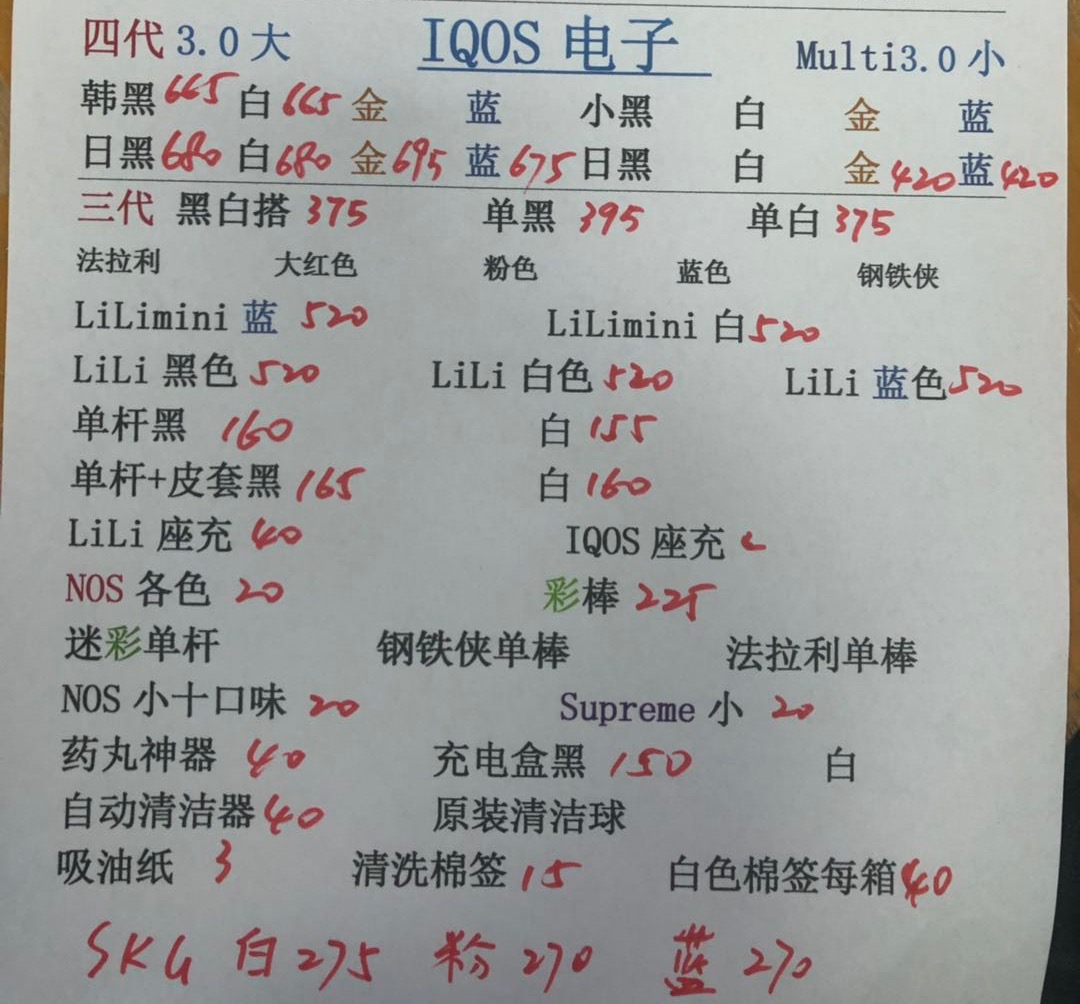 四代 3.0 大 IQOS 电子 Multi3.0 小
韩黑 665 白 665 金 蓝 小黑 白 金 蓝
日黑 680 白 680 金 695 蓝 675 日黑 白 金 420 蓝 420
三代 黑白搭 375 单黑 395 单白 375
法拉利 大红色 粉色 蓝色 钢铁侠
LiLimini 蓝 520 LiLimini 白 520
LiLi 黑色 520 LiLi 白色 520 LiLi 蓝色 520
单杆黑 160 白 155
单杆+皮套黑 165 白 160
LiLi 座充 40 IQOS 座充
NOS 各色 20 彩棒 225
迷彩单杆 钢铁侠单棒 法拉利单棒
NOS 小十口味 20 Supreme 小 20
药丸神器 40 充电盒黑 150 白
自动清洁器 40 原装清洁球
吸油纸 3 清洗棉签 15 白色棉签每箱 40
SKG 白 275 粉 270 蓝 270